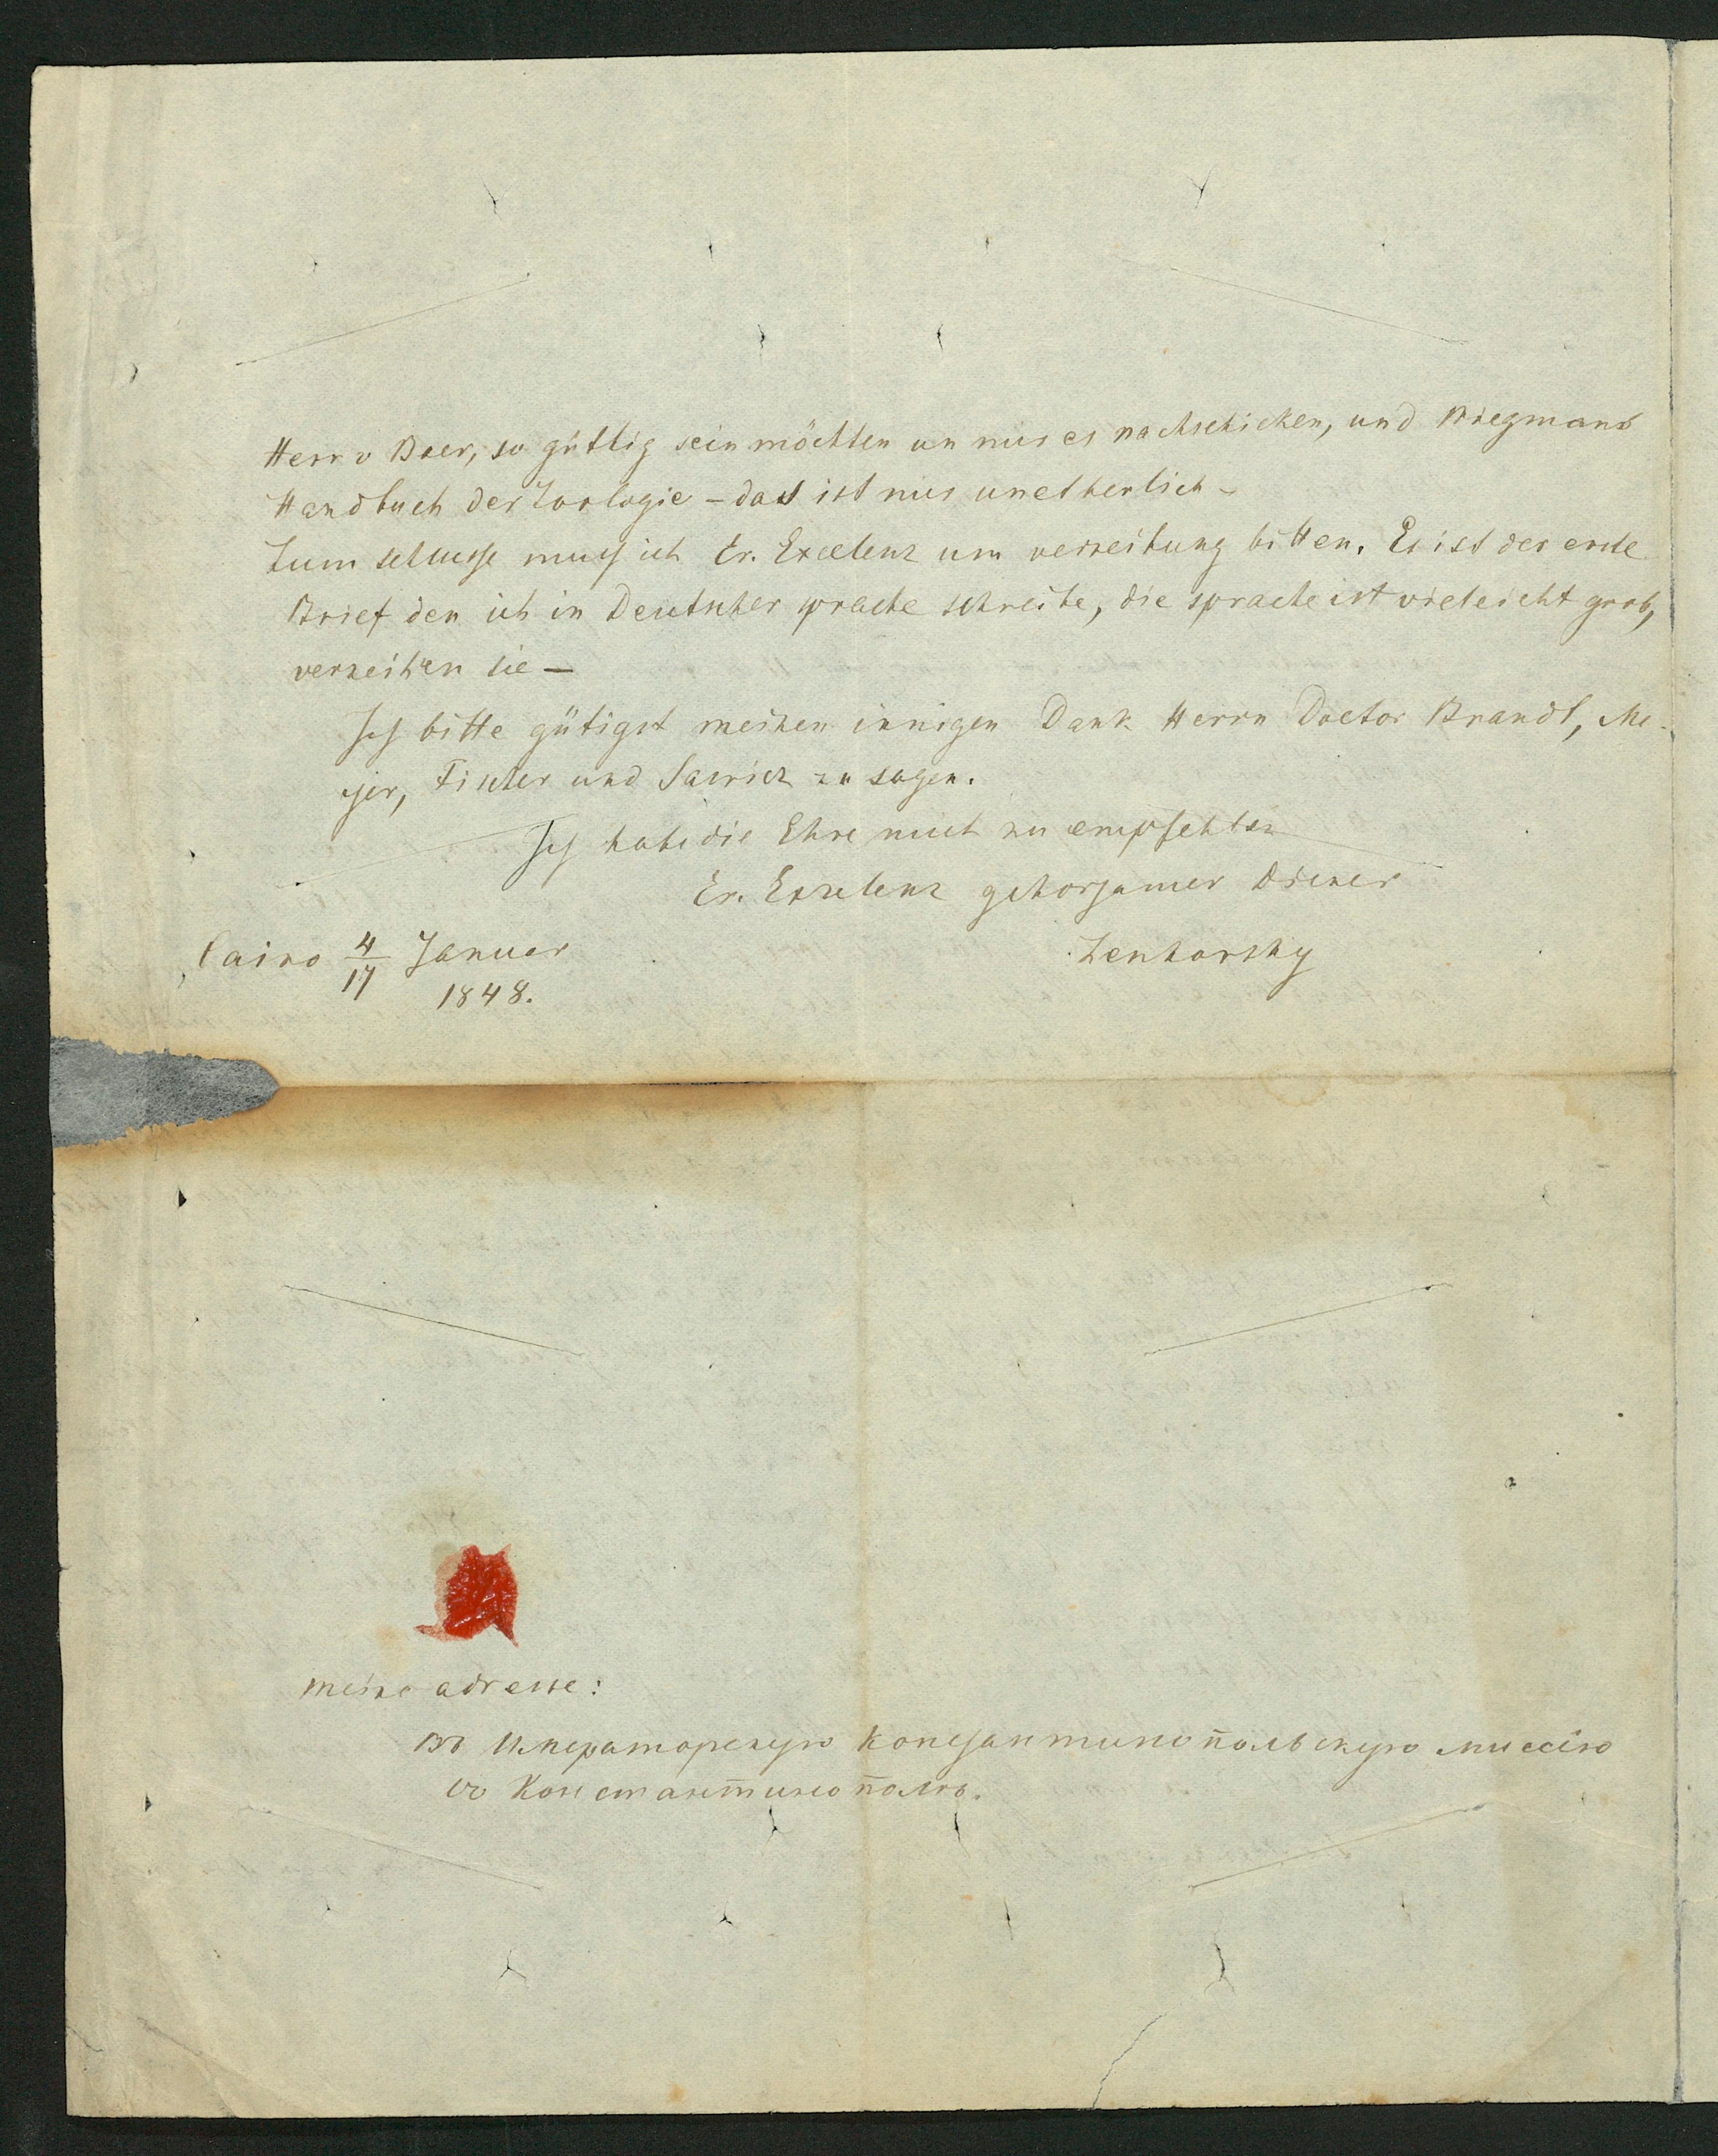 Herr v Baer, so güttig sein möchten un mir es nachschicken, und Wiegmans
Handbuch der Zoologie – das ist mir unetherlich –
Zum schlusse muß ich Er. Excelenz um verzeihung bitten. Es ist der erste
Brief den ich in Deutscher sprache schreibe, die sprache ist vieleicht grob,
verzeihen sie —
Ich bitte gütigst meinen innigen Dank Herrn Doctor Brandt, Me-
yer, Fischer und Sawicz zu sagen.
Ich habe die Ehre mich zu empfehlen
Er. Exzelenz gehorsamer Diener
Cairo 4/17 Januar
Zenkovsky
1848.
meine adresse:
Въ Императорскую Константинопольскую миссiю
въ Константинополѣ.